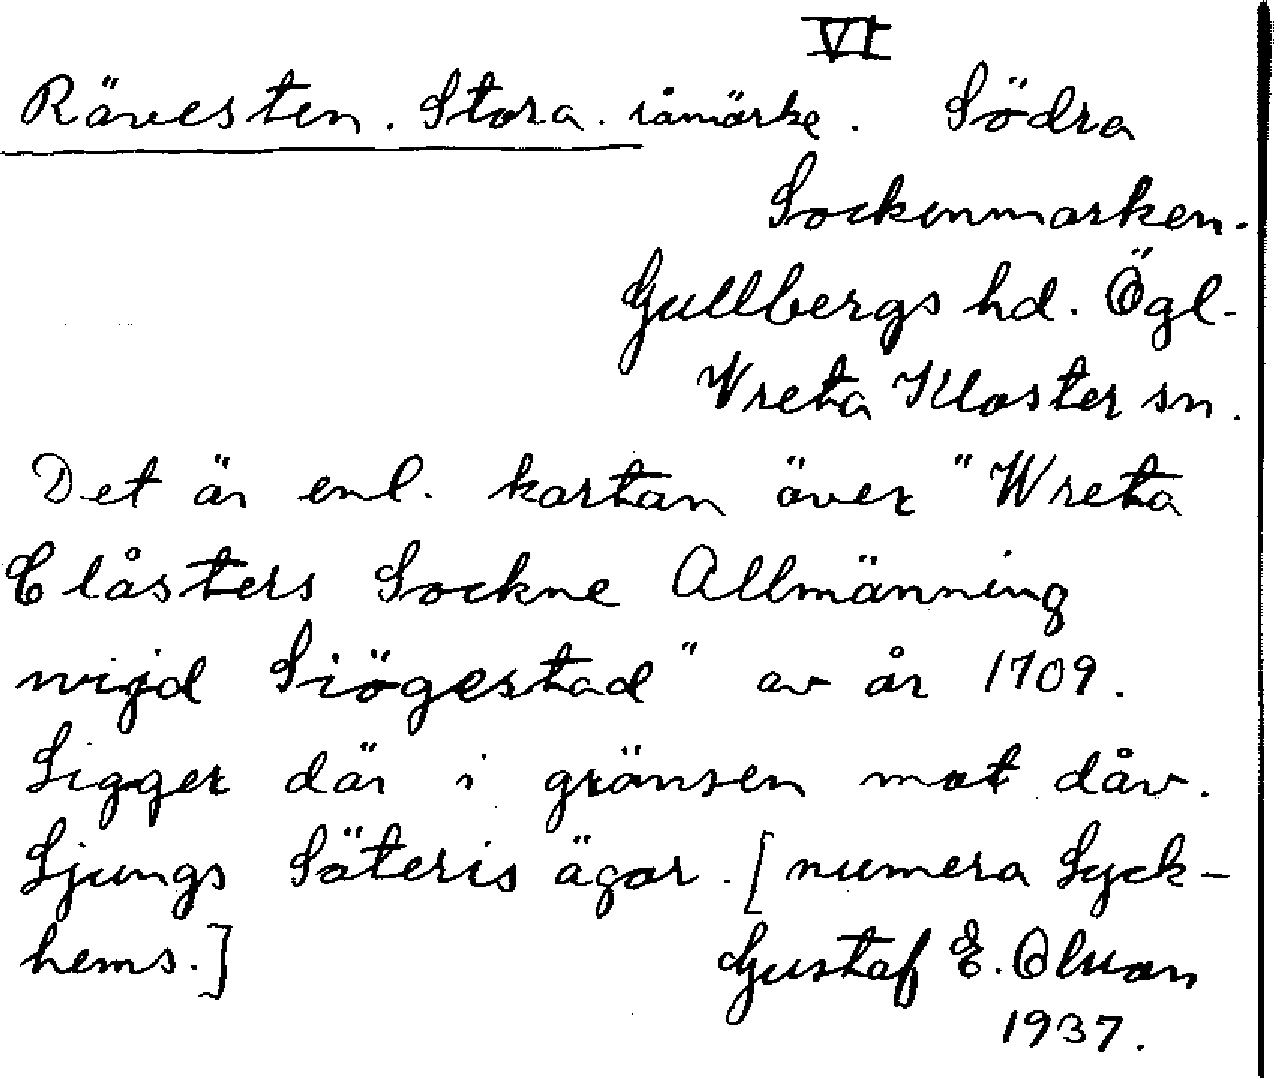 VI
Rävesten. Stora. råmärke. Södra
Sockenmarken.
Gullbergs hd. Ögl.
Wreta Kloster sn.
Det är enl. kartan över "Wreta
Clåsters Sockne Allmänning
wijd Siögestad" av år 1709.
Ligger där i gränsen mot dåv.
Ljungs Säteris ägor. [numera Lyck-
hems.]
Gustaf E. Olson
1937.